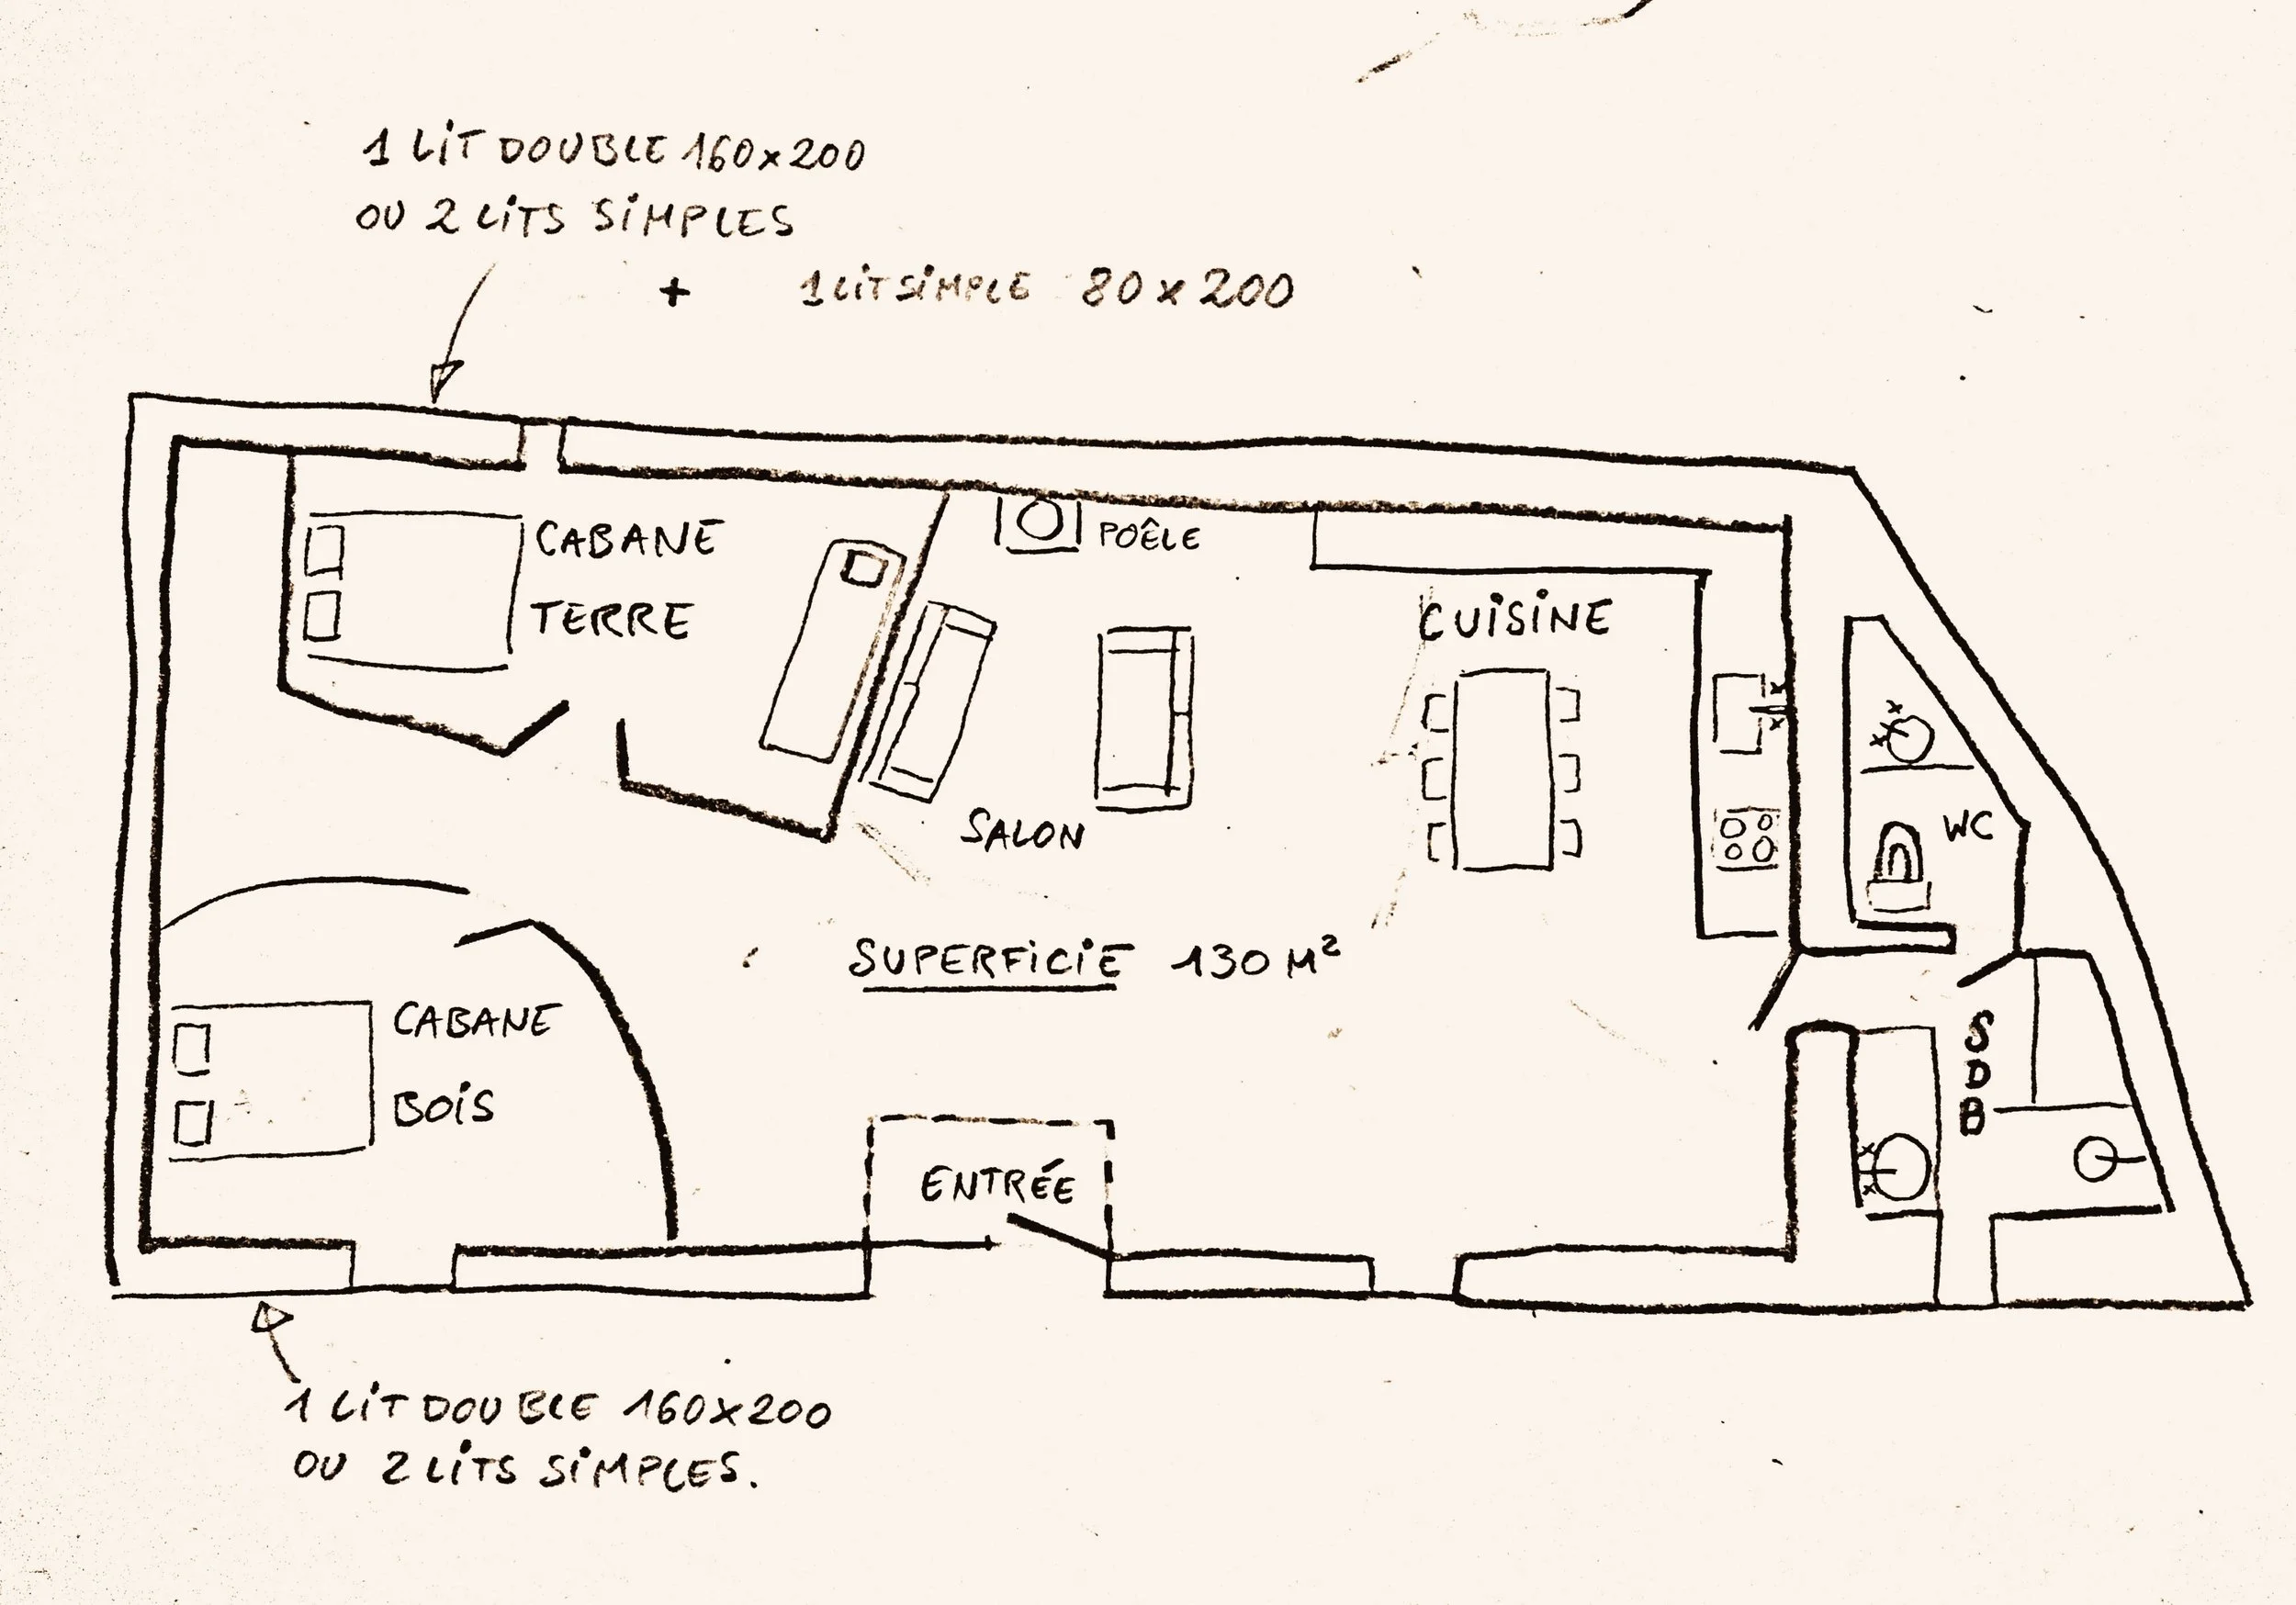 1 LiT DOUBLE 160x200
OU 2 LiTS SiMPLES
+ 1 LiT SiMPLE 80 x 200
CABANE
TERRE
POÊLE
CUiSiNE
SALON
WC
SUPERFiCiE 130 M²
CABANE
BOiS
SDB
ENTRÉE
1 LiT DOUBLE 160x200
OU 2 LiTS SiMPLES.